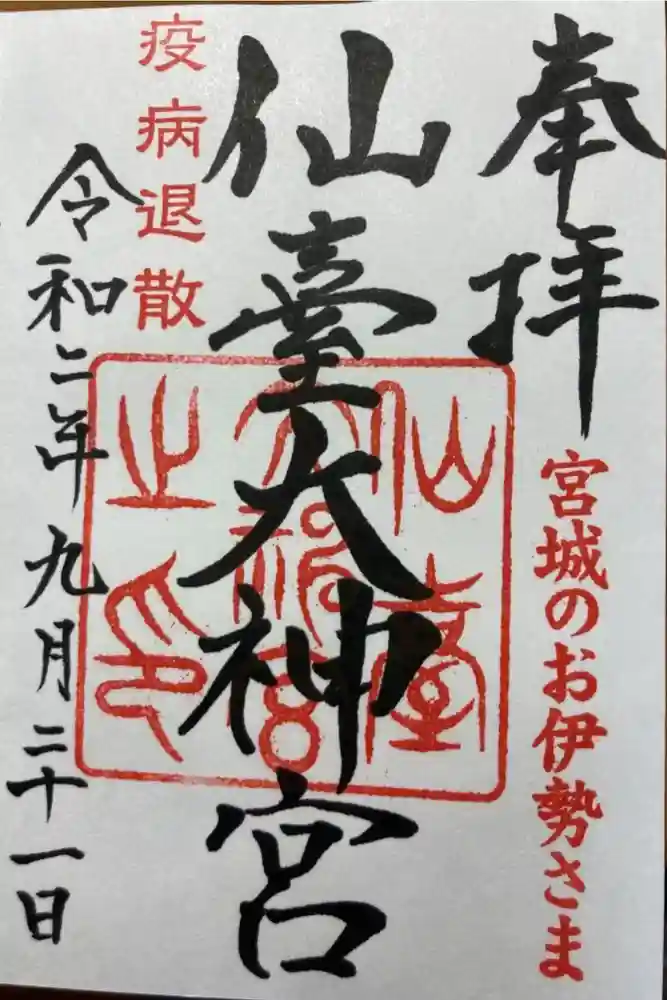 奉拝
宮城のお伊勢さま
仙臺大神宮
仙臺大神宮之印
疫病退散
令和二年九月二十一日